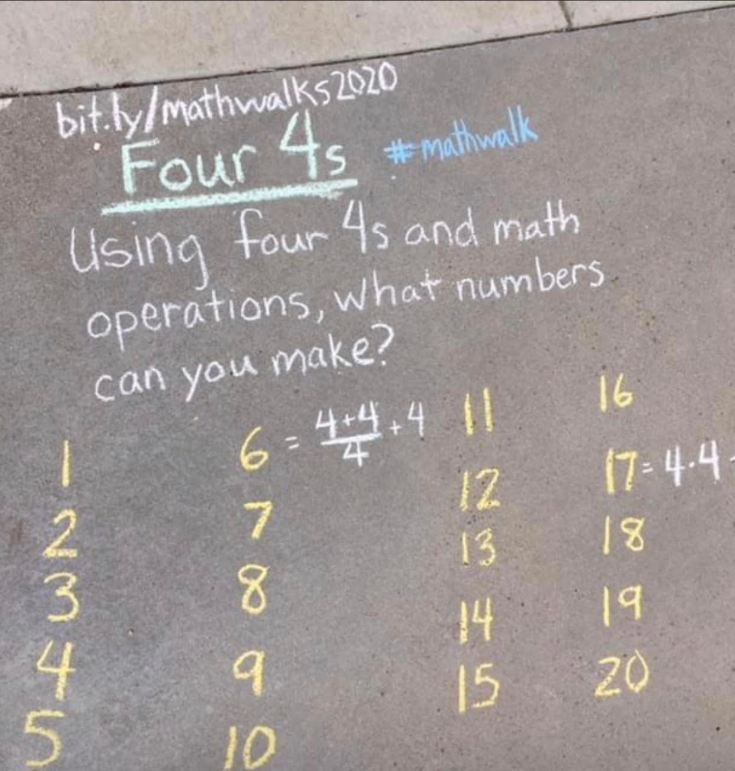 bit.ly/mathwalks2020
Four 4s #mathwalk
Using four 4s and math
operations, what numbers
can you make?
1
2
3
4
5
6 = 4+4/4 + 4
7
8
9
10
11
12
13
14
15
16
17 = 4·4
18
19
20